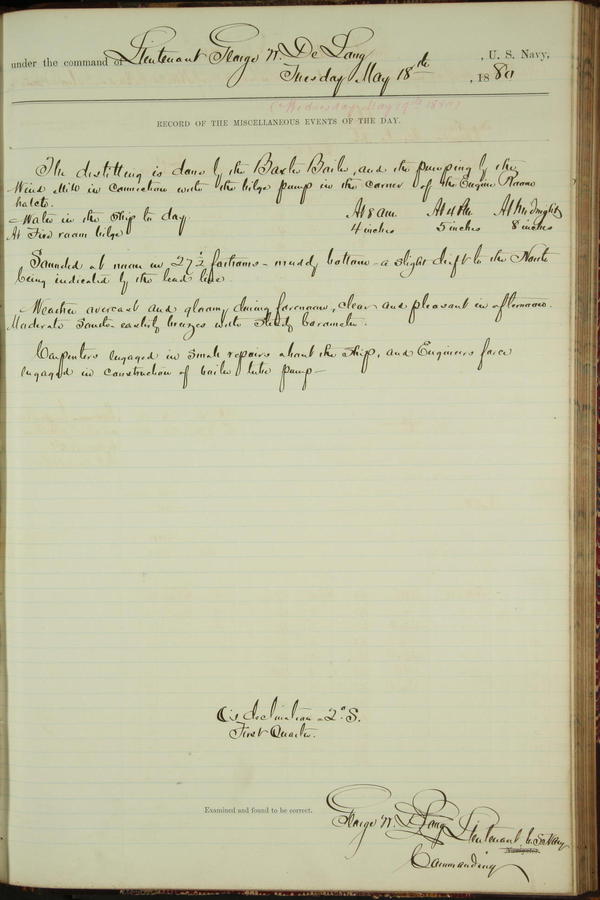 under the command of Lieutenant George W. De Long, U. S. Navy,
Tuesday May 18th, 1880
(Wednesday May 19th 1880)
RECORD OF THE MISCELLANEOUS EVENTS OF THE DAY.
The distilling is done by the Baxter Boiler, and the pumping by the
Wind Mill in connection with the bilge pump in the corner of the Engine Room
hatch.
Water in the ship to day. At 8 am At 4 PM At Midnight
At Fire room bilge 4 inches 5 inches 8 inches
Sounded at noon in 27½ fathoms - muddy bottom - a slight drift to the North
being indicated by the lead line
Weather overcast and gloomy during forenoon, clear and pleasant in afternoon.
Moderate South easterly breezes with steady barometer.
Carpenters engaged in small repairs about the ship, and Engineers force
engaged in construction of boiler tube pump -
C's declination - 2° S.
First Quarter.
Examined and found to be correct.
George W. De Long Lieutenant U.S. Navy
Navigator.
Commanding